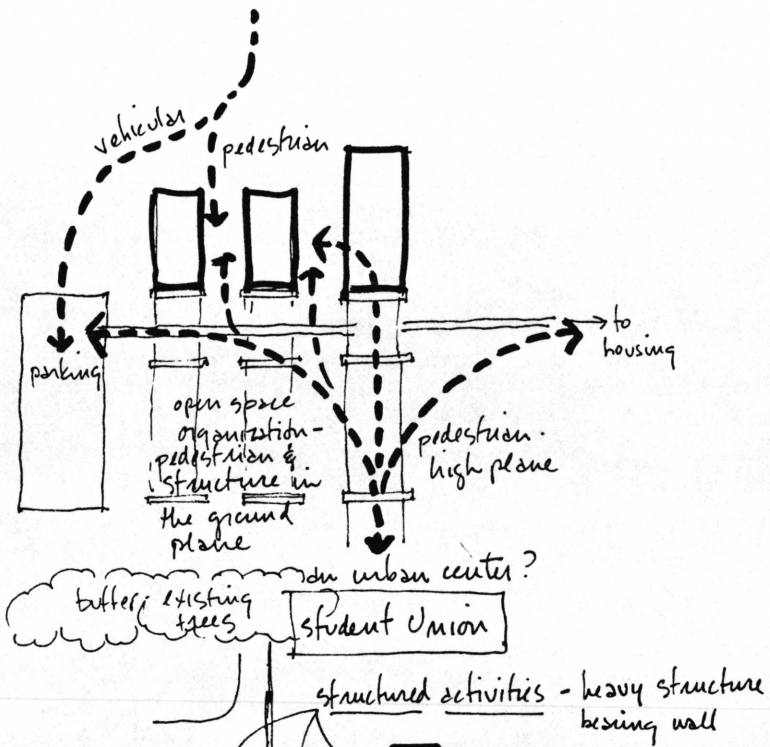 vehicular
pedestrian
to
housing
parking
open space
organization-
pedestrian &
structure in
the ground
plane
pedestrian.
high plane
an urban center?
buffer; existing
trees
Student Union
structured activities - heavy structure
bearing wall